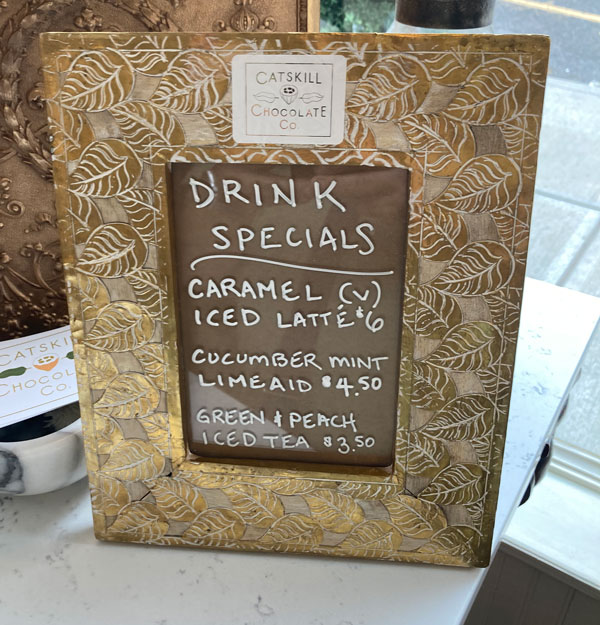 CATSKILL
CHOCOLATE
CO.
DRINK
SPECIALS
CARAMEL (V)
ICED LATTÉ $6
CUCUMBER MINT
LIMEAID $4.50
GREEN & PEACH
ICED TEA $3.50
CATSKI
CHOCOL
CO.